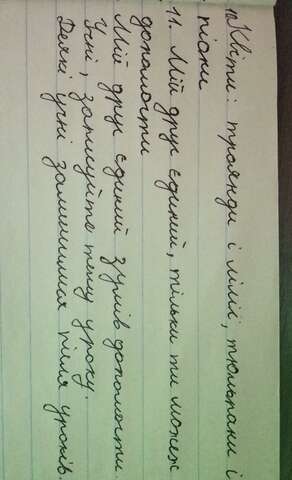 10 Квіти: троянди і лілії, тюльпани і
піони
11. Мій друг єдиний, тільки ти можеш
допомогти
Мій друг єдиний зумів допомогти.
Учні, запишуйте тему уроку.
Деякі учні залишились після уроків.